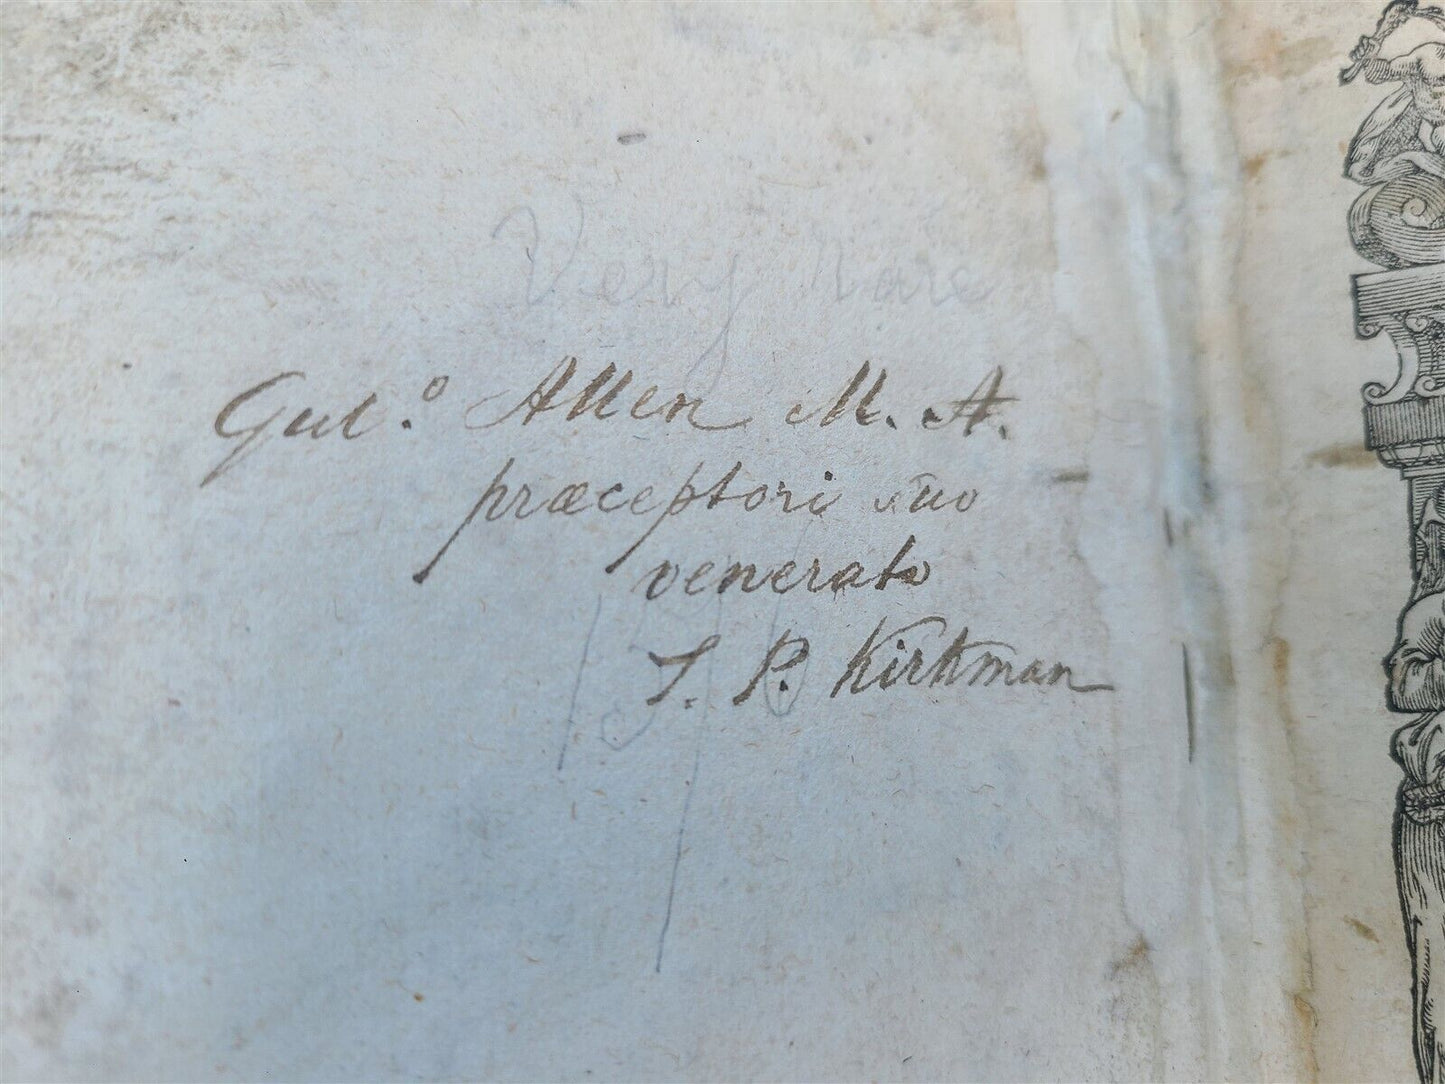 Very rare
Gul.º Allen M. A.
præceptori suo
venerato
T. P. Kirkman